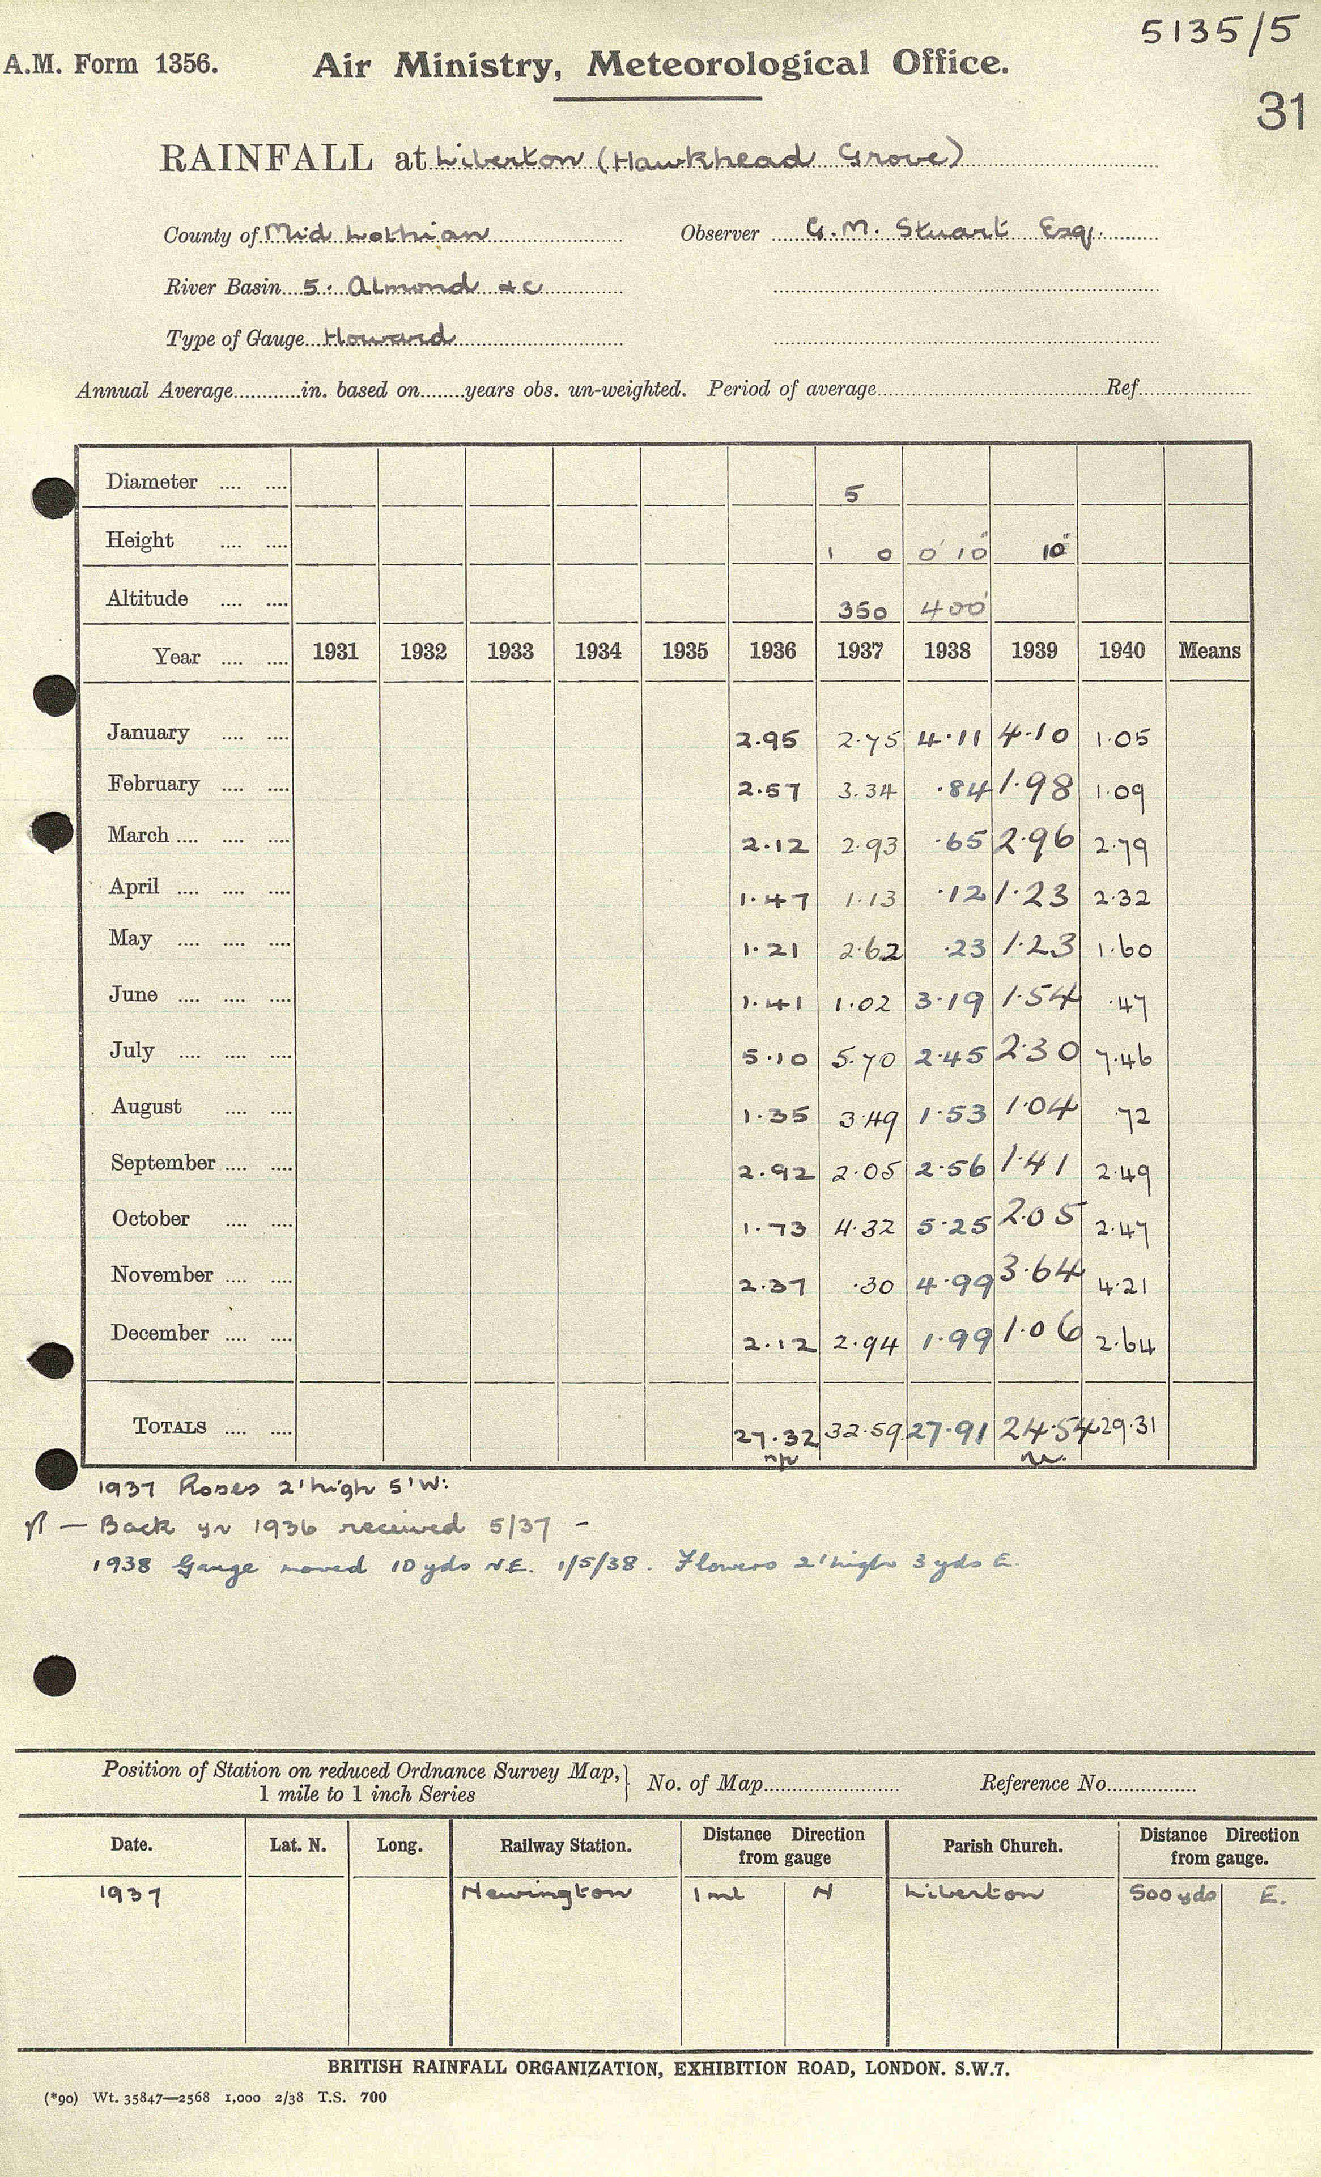 5135/5
A.M. Form 1356. Air Ministry, Meteorological Office.
31
RAINFALL at Liberton (Hawkhead Grove)
County of Mid Lothian Observer G.M. Stuart Esq.
River Basin 5. Almond &c
Type of Gauge Howard
Annual Average............in. based on........years obs. un-weighted. Period of average........................Ref.............
Diameter .... .... 5
Height .... .... 1 0 0' 10" 10"
Altitude .... .... 350 400'
Year .... .... 1931 1932 1933 1934 1935 1936 1937 1938 1939 1940 Means
January .... .... 2.95 2.75 4.11 4.10 1.05
February .... .... 2.57 3.34 .84 1.98 1.09
March .... .... .... 2.12 2.93 .65 2.96 2.79
April .... .... .... 1.47 1.13 .12 1.23 2.32
May .... .... .... 1.21 2.62 .23 1.23 1.60
June .... .... .... 1.41 1.02 3.19 1.54 .47
July .... .... .... 5.10 5.70 2.45 2.30 7.46
August .... .... 1.35 3.49 1.53 1.04 72
September .... .... 2.92 2.05 2.56 1.41 2.49
October .... .... 1.73 4.32 5.25 2.05 2.47
November .... .... 2.37 .30 4.99 3.64 4.21
December .... .... 2.12 2.94 1.99 1.06 2.64
TOTALS .... .... 27.32 32.59 27.91 24.54 29.31
1937 Roses 2' high 5' W:
— Back yr 1936 received 5/37 –
1938 Gauge moved 10 yds N.E. 1/5/38. Flowers 2' high 3 yds E.
Position of Station on reduced Ordnance Survey Map, 1 mile to 1 inch Series } No. of Map.............. Reference No..............
Date. Lat. N. Long. Railway Station. Distance Direction from gauge Parish Church. Distance Direction from gauge.
1937 Newington 1 ml N Liberton 500 yds E.
BRITISH RAINFALL ORGANIZATION, EXHIBITION ROAD, LONDON. S.W.7.
(*90) Wt. 35847—2568 1,000 2/38 T.S. 700